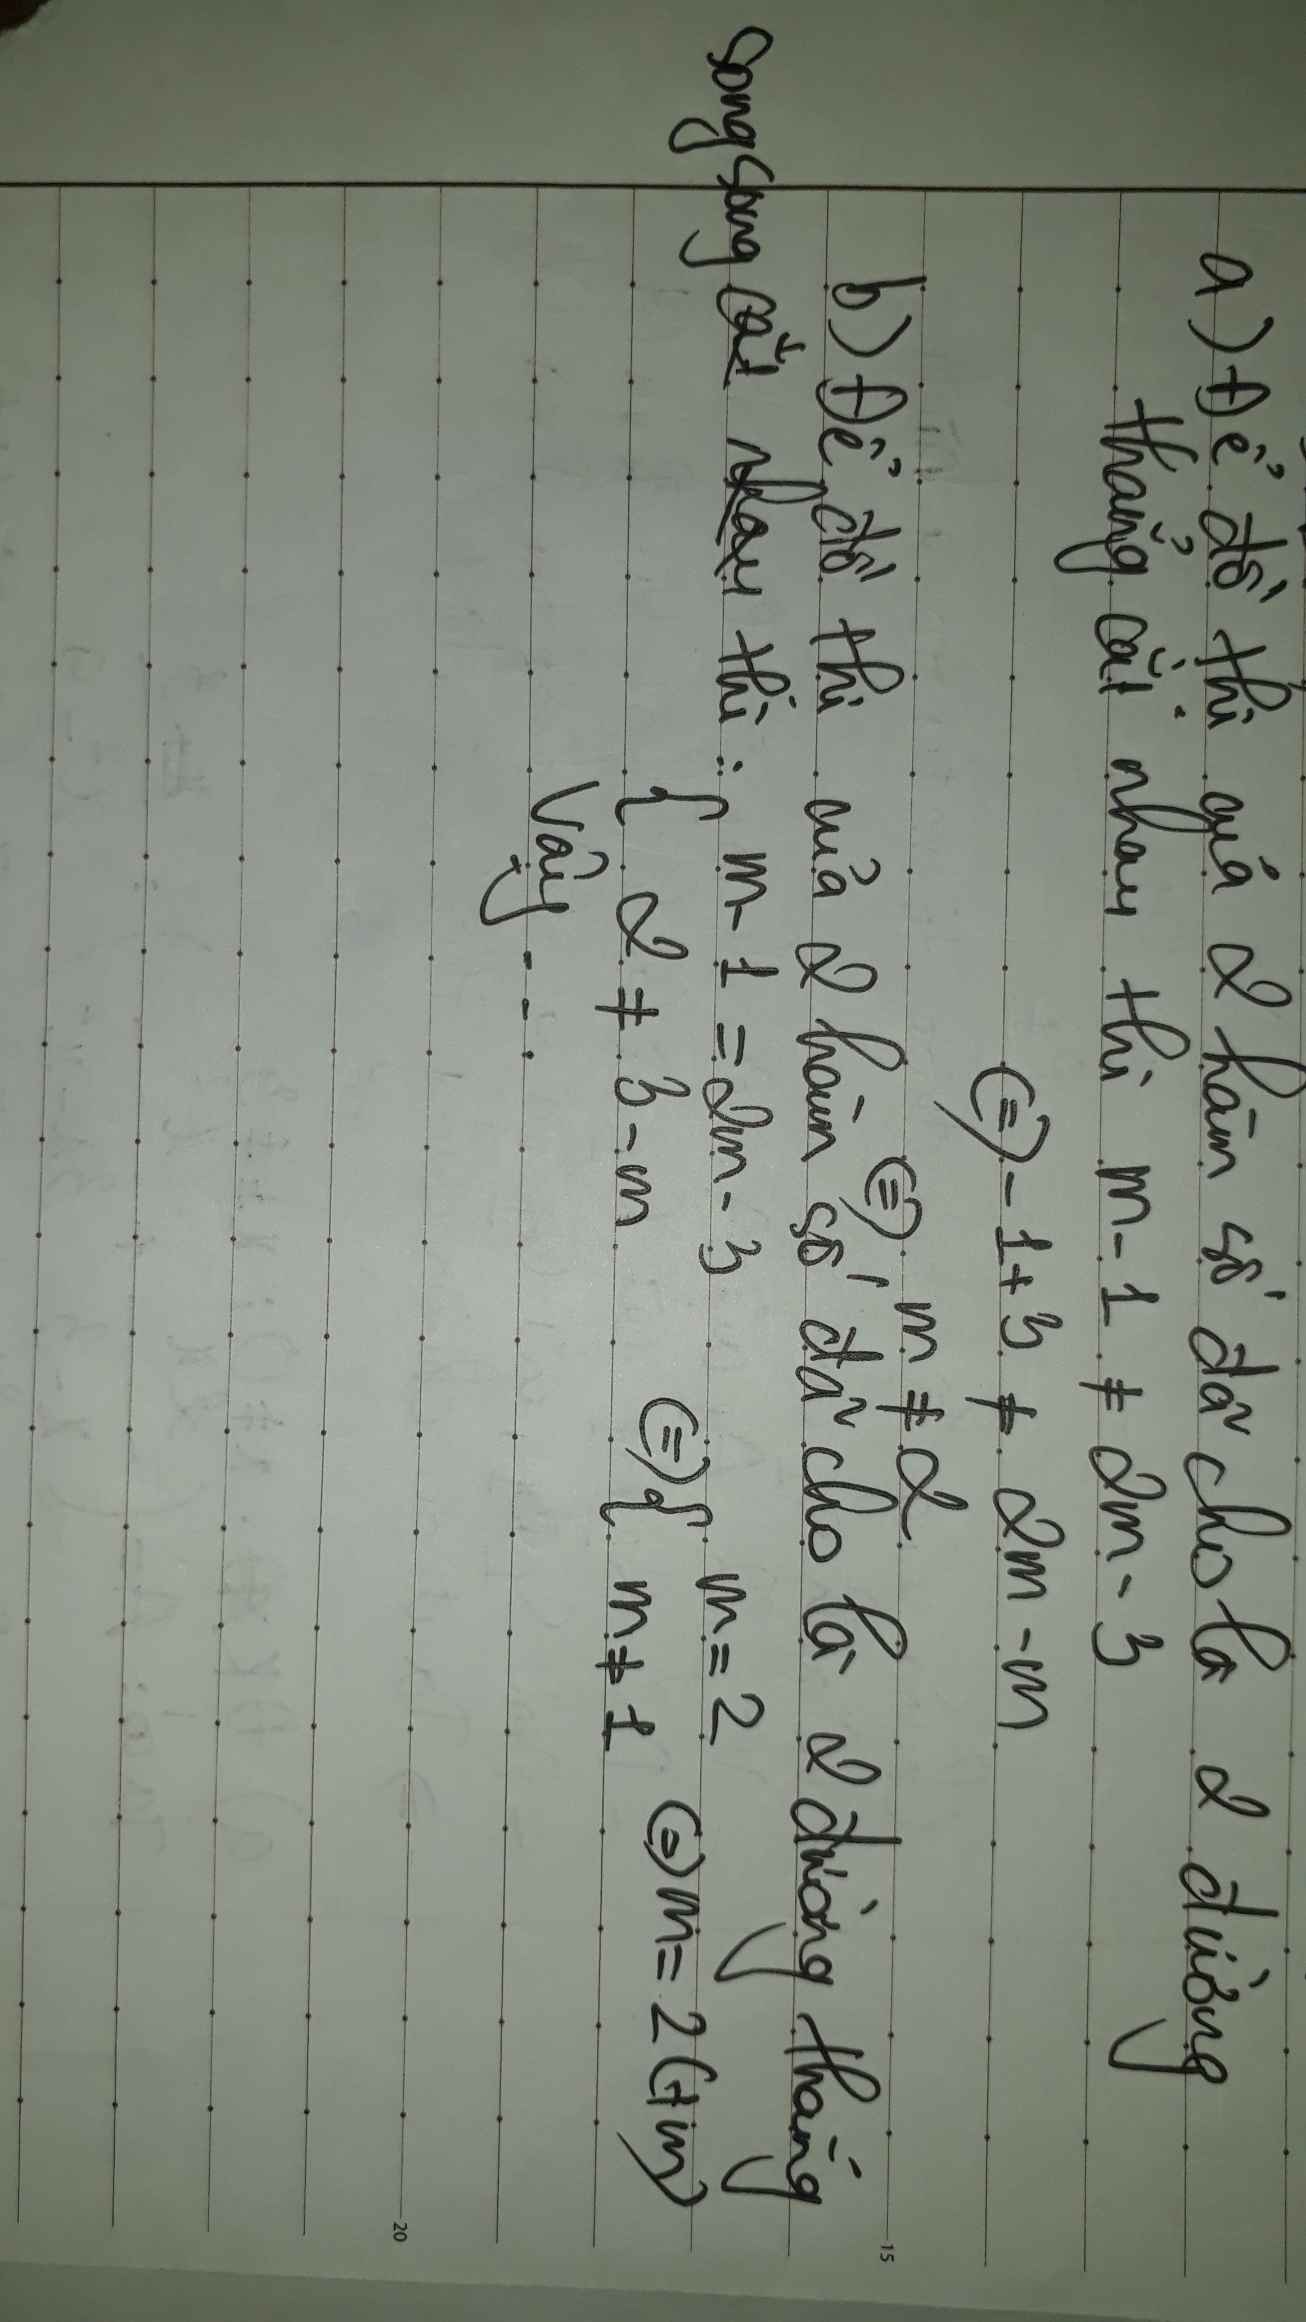 a) Để đồ thị quả 2 hàm số đã cho là 2 đường
thẳng cắt nhau thì m-1 ≠ 2m-3
(=) -1+3 ≠ 2m-m
(=) m ≠ 2
b) Để đồ thị của 2 hàm số đã cho là 2 đường thẳng
song song cắt nhau thì: { m-1 = 2m-3
2 ≠ 3-m
(=) { m=2
m≠1
(=) m=2 (tm)
Vậy - - .
15
20